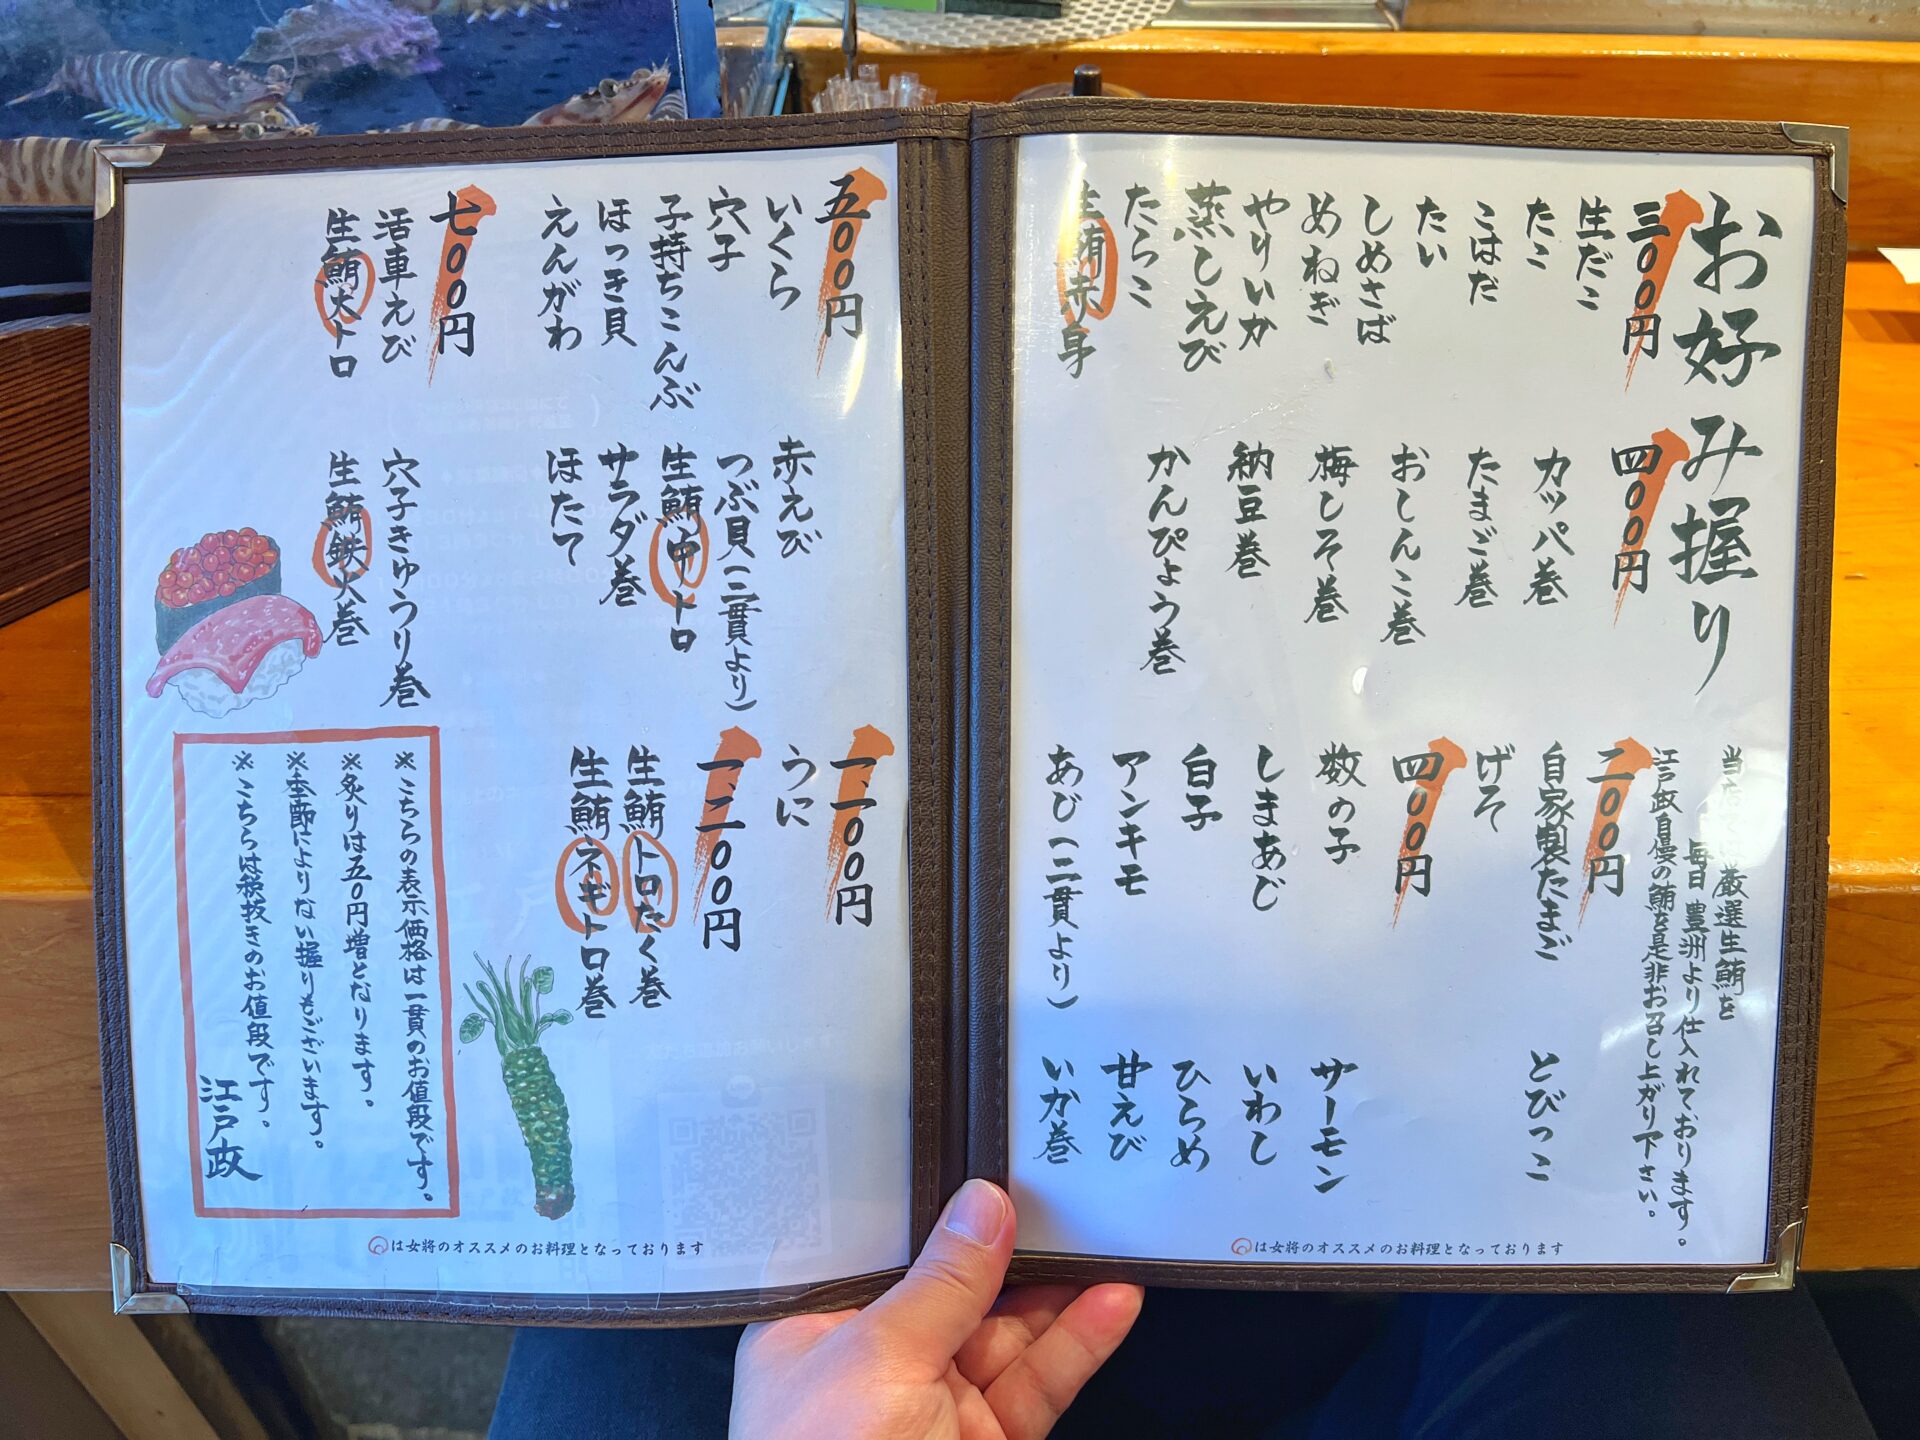 お好み握り
三〇〇円
生だこ
たこ
こはだ
たい
しめさば
めねぎ
やりいか
蒸しえび
たらこ
生鮪赤身
四〇〇円
カッパ巻
たまご巻
おしんこ巻
梅しそ巻
納豆巻
かんぴょう巻
厳選生鮪を
毎日豊洲より仕入れております。
江戸政自慢の鮪を是非お召し上がり下さい。
二〇〇円
自家製たまご
げそ
とびっこ
四〇〇円
数の子
しまあじ
白子
アンキモ
あじ(二貫より)
サーモン
いわし
ひらめ
甘えび
いか巻
は女将のオススメのお料理となっております
五〇〇円
いくら
穴子
子持ちこんぶ
ほっき貝
えんがわ
赤えび
つぶ貝(二貫より)
生鮪中トロ
サラダ巻
ほたて
七〇〇円
活車えび
生鮪大トロ
穴子きゅうり巻
生鮪鉄火巻
一、一〇〇円
うに
一、二〇〇円
生鮪トロたく巻
生鮪ネギトロ巻
※こちらの表示価格は一貫のお値段です。
※炙りは五〇円増となります。
※季節によりない握りもございます。
※こちらは税抜きのお値段です。
江戸政
は女将のオススメのお料理となっております